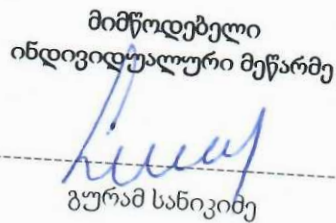 მიმწოდებელი
ინდივიდუალური მეწარმე
გურამ სანიკიძე